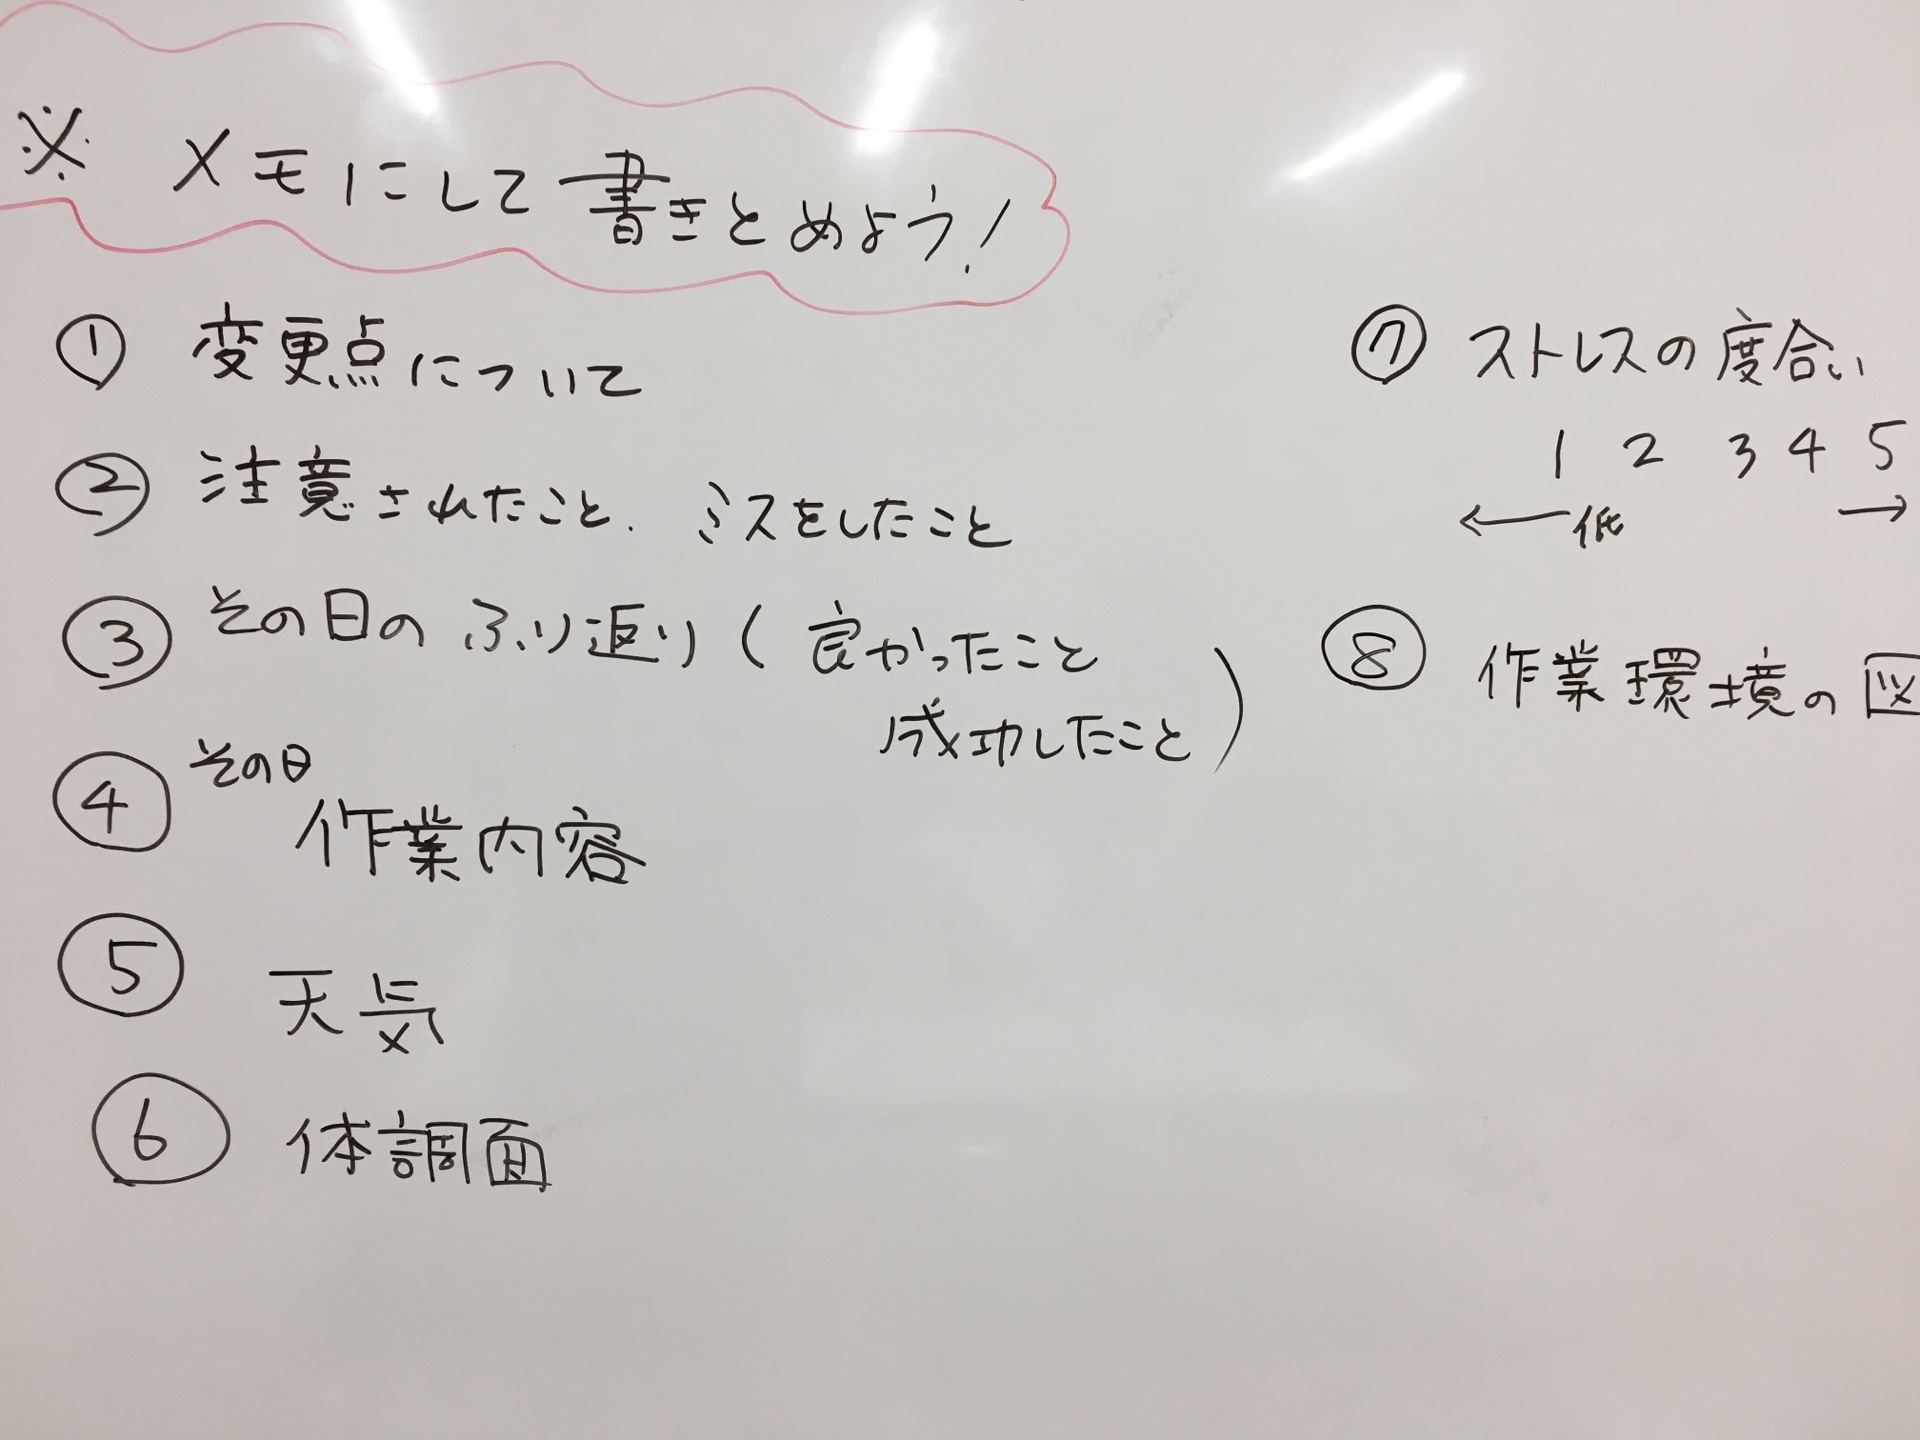 ※ メモにして書きとめよう!
① 変更点について
② 注意されたこと. ミスをしたこと
③ その日のふり返り ( 良かったこと
成功したこと )
④ その日
作業内容
⑤ 天気
⑥ 体調面
⑦ ストレスの度合い
1 2 3 4 5
← 低 →
⑧ 作業環境の図